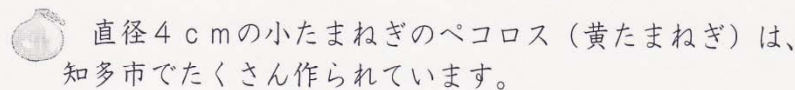 直径4cmの小たまねぎのペコロス（黄たまねぎ）は、
知多市でたくさん作られています。